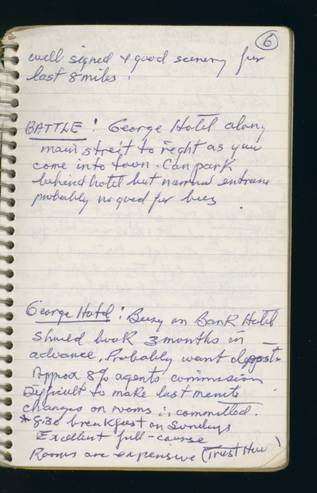 6
well signed & good scenery for
last 8 miles.
BATTLE! George Hotel along
main street to right as you
come into town. Can park
behind hotel but narrow entrance
probably no good for bus.
George Hotel! Busy on Bank Hotel
should book 3 months in
advance. Probably want deposit
Approx 8% agents commission
Difficult to make last minute
changes on rooms is committed.
* 8:30 breakfast on Sundays
Excellent full-course
Rooms are expensive (Trust House)